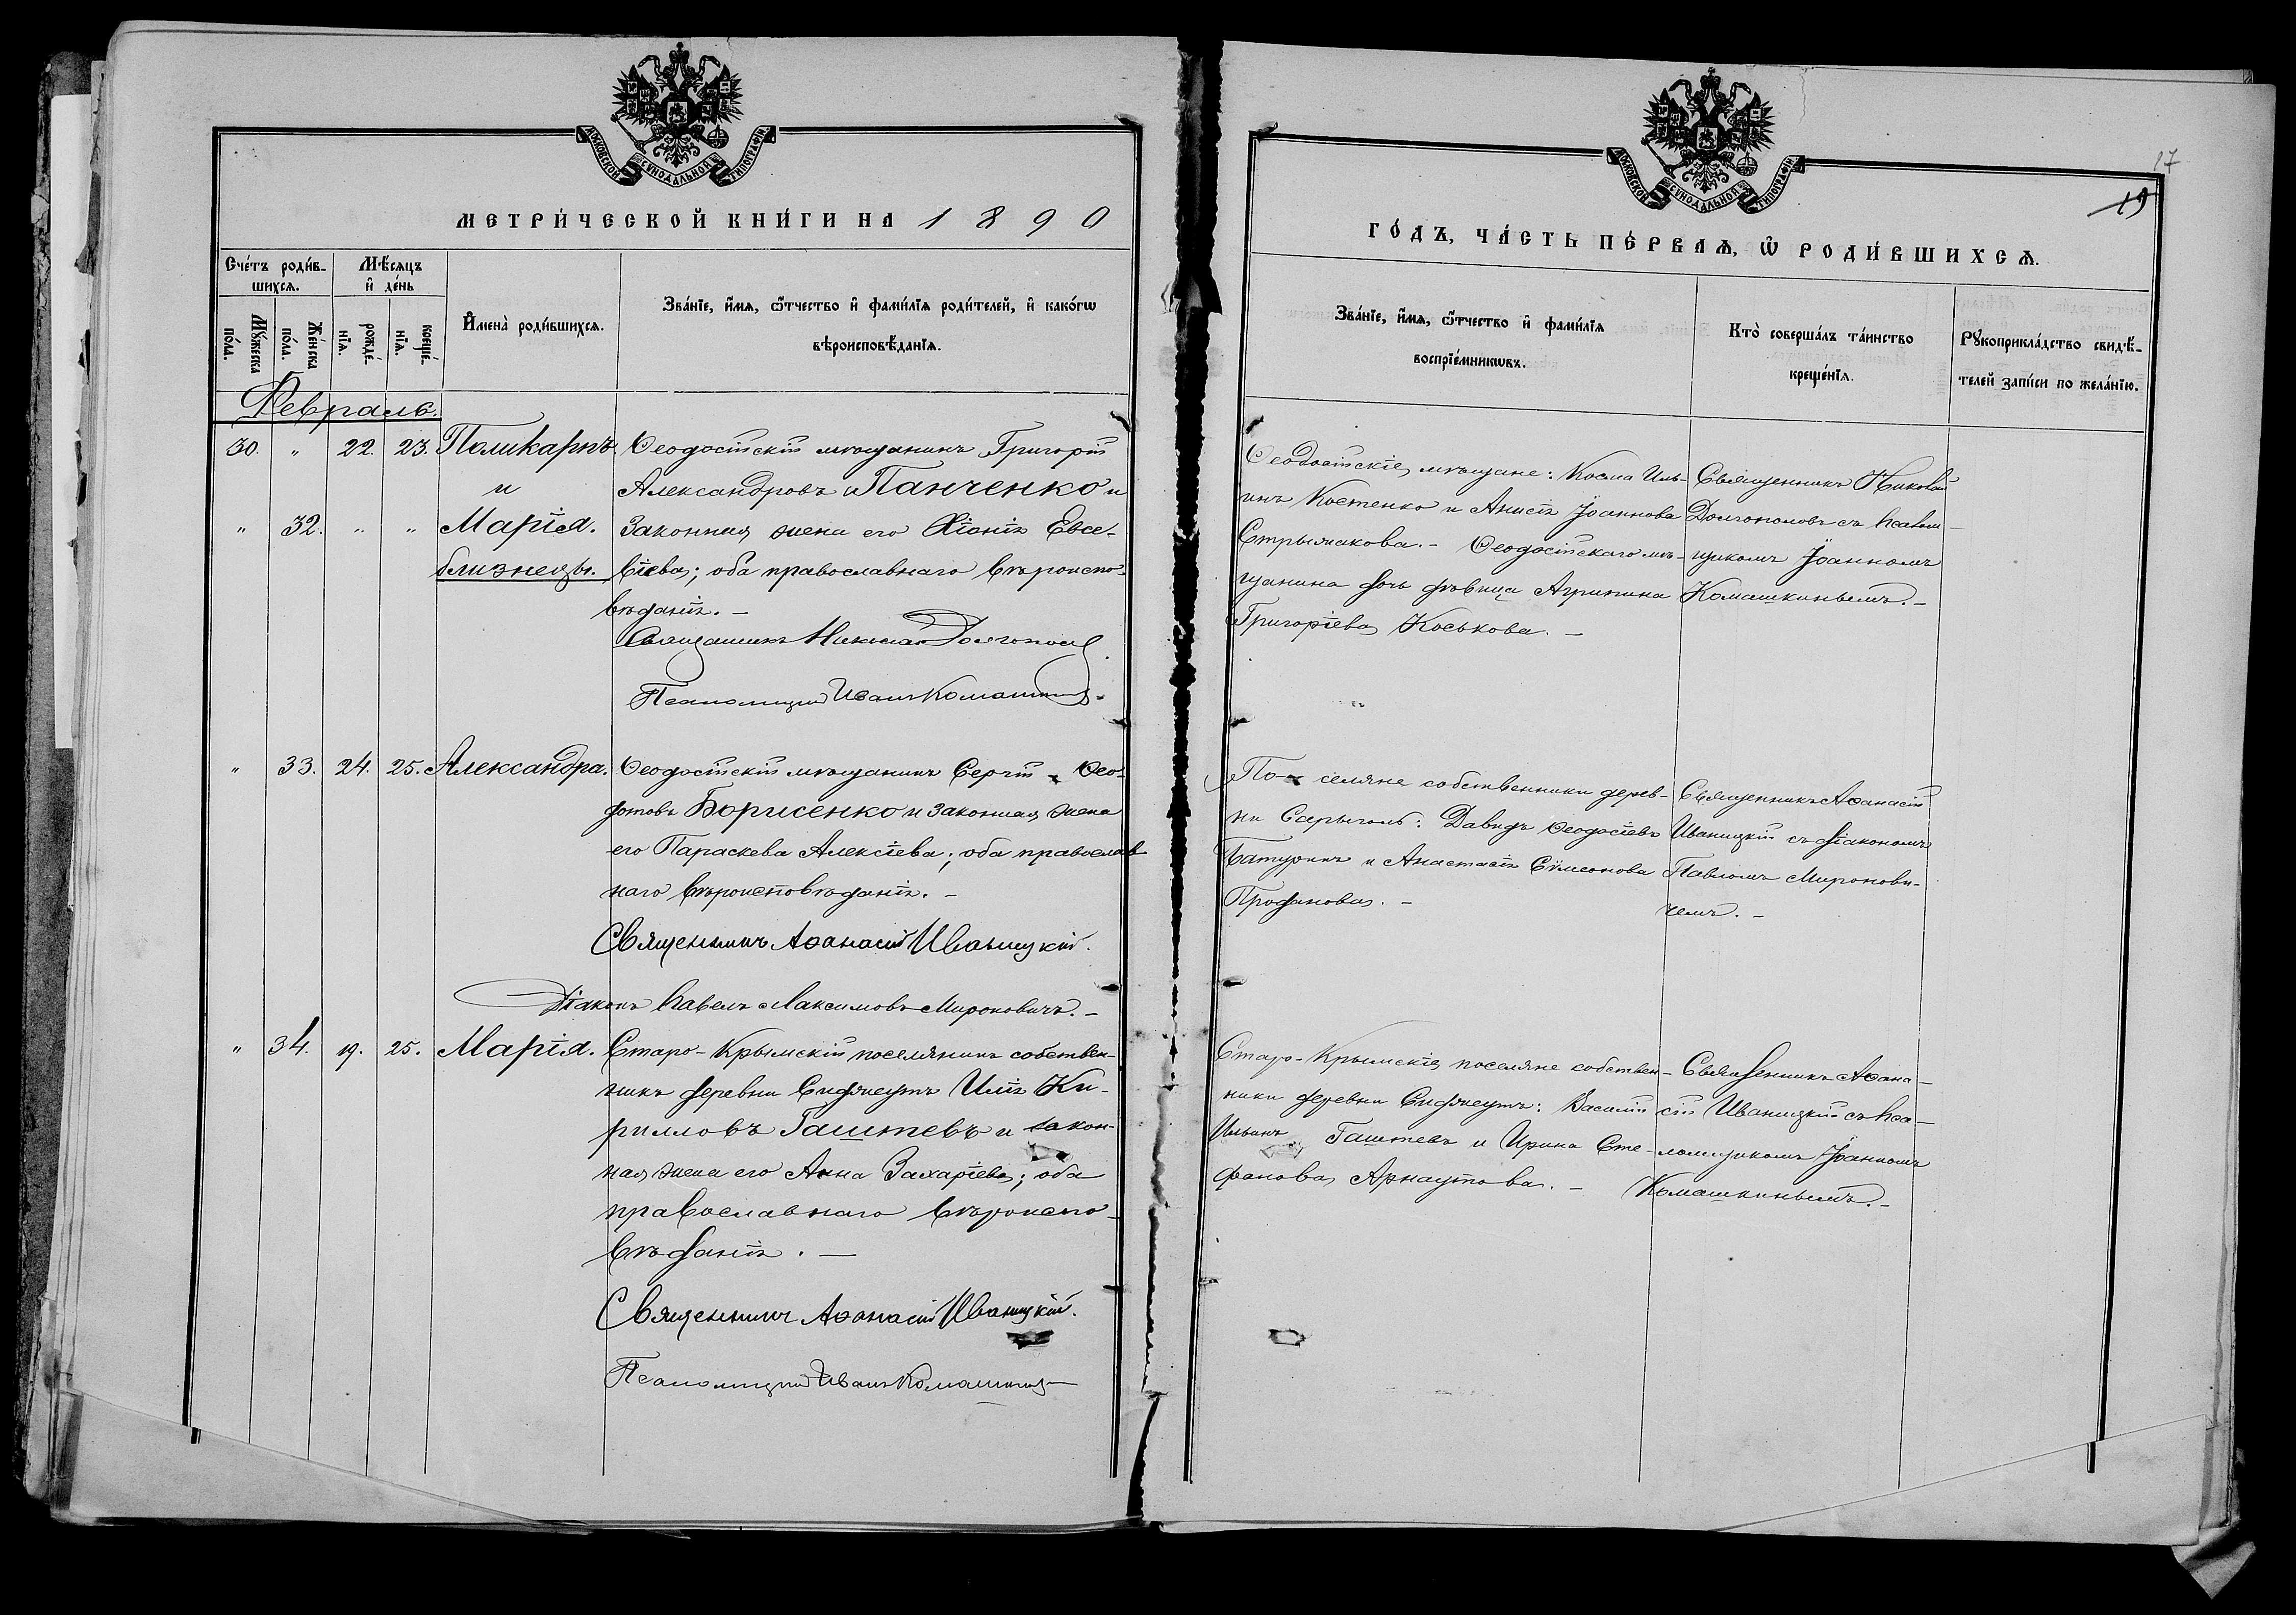 МОСКОВСКОЙ СѴНОДАЛЬНОЙ ТИПОГРАФІИ
МЕТРИ́ЧЕСКОЙ КНИ́ГИ НА 1890
Сче́тъ роди́в-
шихсѧ.
Мѣ́сѧцъ
и҆ де́нь
Мꙋ́жеска
по́ла.
Же́нска
по́ла.
рожде́-
нїѧ.
креще́-
нїѧ.
И҆мена̀ роди́вшихсѧ.
Зва́нїе, и҆́мѧ, ѻ҆́тчество и҆ фами́лїѧ роди́телей, и҆ како́гѡ
вѣроисповѣ́данїѧ.
Февраль.
30. " 22. 23. Поликарпъ
и
" 32. " " Марія.
близнецы.
Ѳеодосійскій мѣщанинъ Григорій
Александровъ Панченко и
законная жена его Ѳіонія Евсе-
віева; оба православнаго вѣроиспо-
вѣданія. –
Священникъ Николай Долгополовъ
Псаломщикъ Иванъ Комашкинъ
" 33. 24. 25. Александра.
Ѳеодосійскій мѣщанинъ Сергій Ѳео-
дотовъ Борисенко и законная жена
его Параскева Алексіева; оба православ
наго вѣроисповѣданія. –
Священникъ Аѳанасій Иваницкій.
Діаконъ Павелъ Максимовъ Мироновичъ. –
" 34. 19. 25. Марія.
Старо-Крымскій поселянинъ собствен-
никъ деревни Сиджеутъ Илія Ки-
рилловъ Гаштевъ и закон-
ная жена его Анна Захаріева; оба
православнаго вѣроиспо-
вѣданія. –
Священникъ Аѳанасій Иваницкій.
Псаломщикъ Иванъ Комашкинъ
МОСКОВСКОЙ СѴНОДАЛЬНОЙ ТИПОГРАФІИ
17
19
ГО́ДЪ, ЧА́СТЬ ПЕ́РВАѦ, Ѡ҆ РОДИ́ВШИХСѦ.
Зва́нїе, и҆́мѧ, ѻ҆́тчество и҆ фами́лїѧ
воспрїе́мникѡвъ.
Кто̀ соверша́лъ та́инство
креще́нїѧ.
Рꙋкоприкла́дство свидѣ́-
телей за́писи по жела́нїю.
Ѳеодосійскіе мѣщане: Косма Иль-
инъ Костенко и Анисія Іоаннова
Стрыжакова. – Ѳеодосійскаго мѣ-
щанина дочь дѣвица Агрипина
Григоріева Коськова. –
Священникъ Николай
Долгополовъ съ псалом-
щикомъ Іоанномъ
Комашкинымъ. –
По- селяне собственники дерев-
ни Сарыголь: Давидъ Ѳеодосіевъ
Батуринъ и Анастасія Симеонова
Проданова. –
Священникъ Аѳанасій
Иваницкій съ діакономъ
Павломъ Миронови-
чемъ. –
Старо-Крымскіе поселяне собствен-
ники деревни Сиджеутъ: Василій
Ильинъ Гаштевъ и Ирина Сте-
фанова Арнаутова. –
Священникъ Аѳана-
сій Иваницкій съ пса-
ломщикомъ Іоанномъ
Комашкинымъ. –